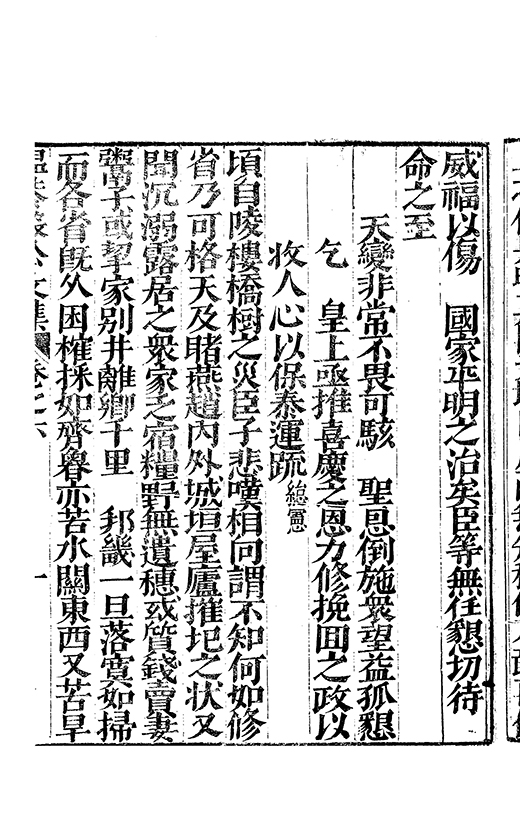 威福以傷　國家平明之治矣臣等無任懇切待
命之至
天變非常不畏可駭　聖恩倒施衆望益孤懇
乞　皇上亟推喜慶之恩力修挽回之政以
收人心以保泰運疏總憲
頃自陵樓橋樹之災臣子悲嘆相向謂不知何如修
省乃可格天及睹燕趙内外城垣屋廬摧圯之状又
聞沉溺露居之衆家乏宿糧野無遺穗或質錢賣妻
鬻子或挈家别井離鄉千里　邦畿一旦落寞如掃
而各省旣久困榷採如齊魯亦苦水關東西又苦旱
公文集　卷之六　一